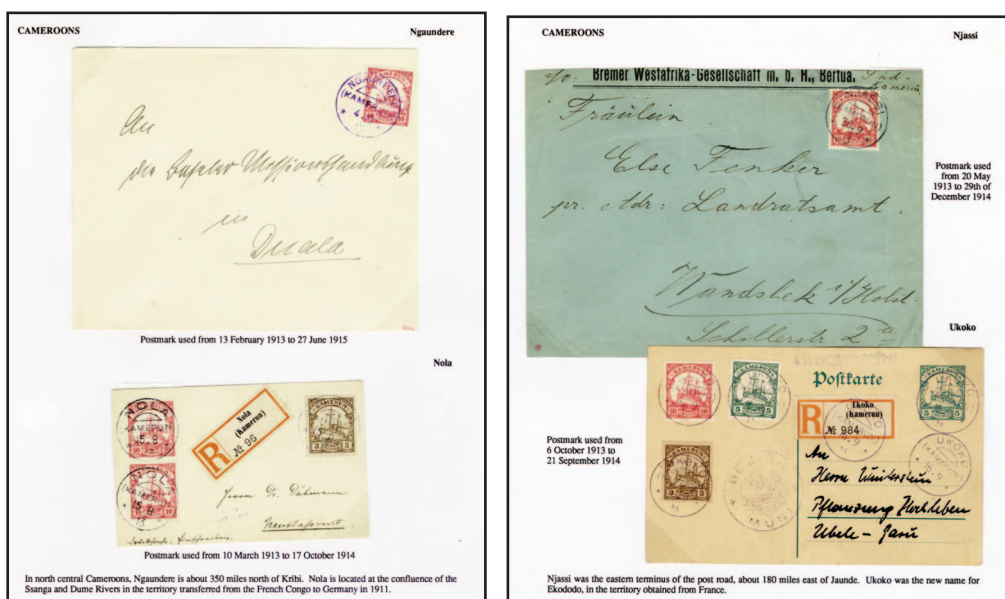 CAMEROONS
Ngaundere
NGAUNDERE
(KAMERUN)
4
KAMERUN
10 10
An
die Baseler Missionshandlung
in
Duala
Postmark used from 13 February 1913 to 27 June 1915
Nola
NOLA
KAMERUN
15.9
10
NOLA
(KAMERUN)
15.9
13
Nola
(Kamerun)
R
№ 96
KAMERUN
3 3
Herrn Dr.
Postmark used from 10 March 1913 to 17 October 1914
In north central Cameroons, Ngaundere is about 350 miles north of Kribi. Nola is located at the confluence of the
Ssanga and Dume Rivers in the territory transferred from the French Congo to Germany in 1911.
CAMEROONS
Njassi
Bremer Westafrika-Gesellschaft m. b. H., Bertua.
Süd-
Kamerun
Fräulein
Else Fenker
pr. Adr: Landratsamt.
Wandsbek i/Holst.
Schillerstr 2a
Postmark used
from 20 May
1913 to 29th of
December 1914
Ukoko
KAMERUN
10 10
KAMERUN
5 5
Postkarte
KAMERUN
5 5
R
Ukoko
(Kamerun)
№ 984
UKOKO
(KAMERUN)
Postmark used from
6 October 1913 to
21 September 1914
KAMERUN
3 3
MUNI
An
Herrn
Pflanzung
Njassi was the eastern terminus of the post road, about 180 miles east of Jaunde. Ukoko was the new name for
Ekododo, in the territory obtained from France.